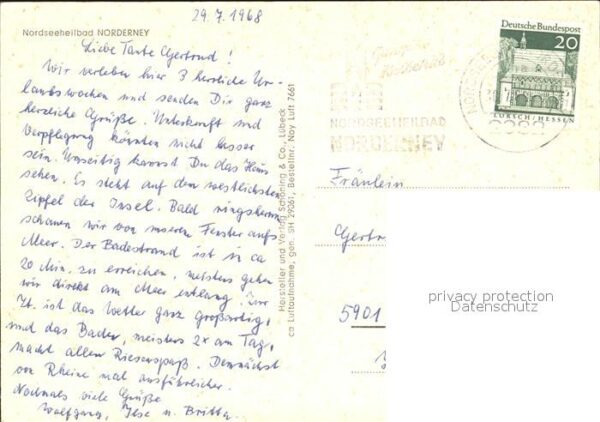 29.7.1968
Nordseeheilbad NORDERNEY
Liebe Tante Gertrud!
Wir verleben hier 3 herrliche Ur-
laubswochen und senden Dir ganz
herzliche Grüße. Unterkunft und
Verpflegung könnten nicht besser
sein. Umseitig kannst Du das Haus
sehen. Es steht auf dem westlichsten
Zipfel der Insel. Bald ringsherum
schauen wir von unseren Fenster aufs
Meer. Der Badestrand ist in ca
20 Min. zu erreichen, meistens gehen
wir direkt am Meer entlang. Zur
Zt. ist das Wetter ganz großartig,
und das Baden, meistens 2x am Tag,
macht allen Riesenspaß. Demnächst
von Rheine mal ausführlicher.
Nochmals viele Grüße
Wolfgang, Ilse u. Britta
Hersteller und Verlag Schöning & Co., Lübeck
ca Luftaufnahme, gen. SH 29061, Bestellnr. Ney Luft 7661
Deutsche Bundespost
20
LORSCH/HESSEN
NORDSEEHEILBAD
NORDERNEY
Fräulein
Gertr
5901
privacy protection
Datenschutz